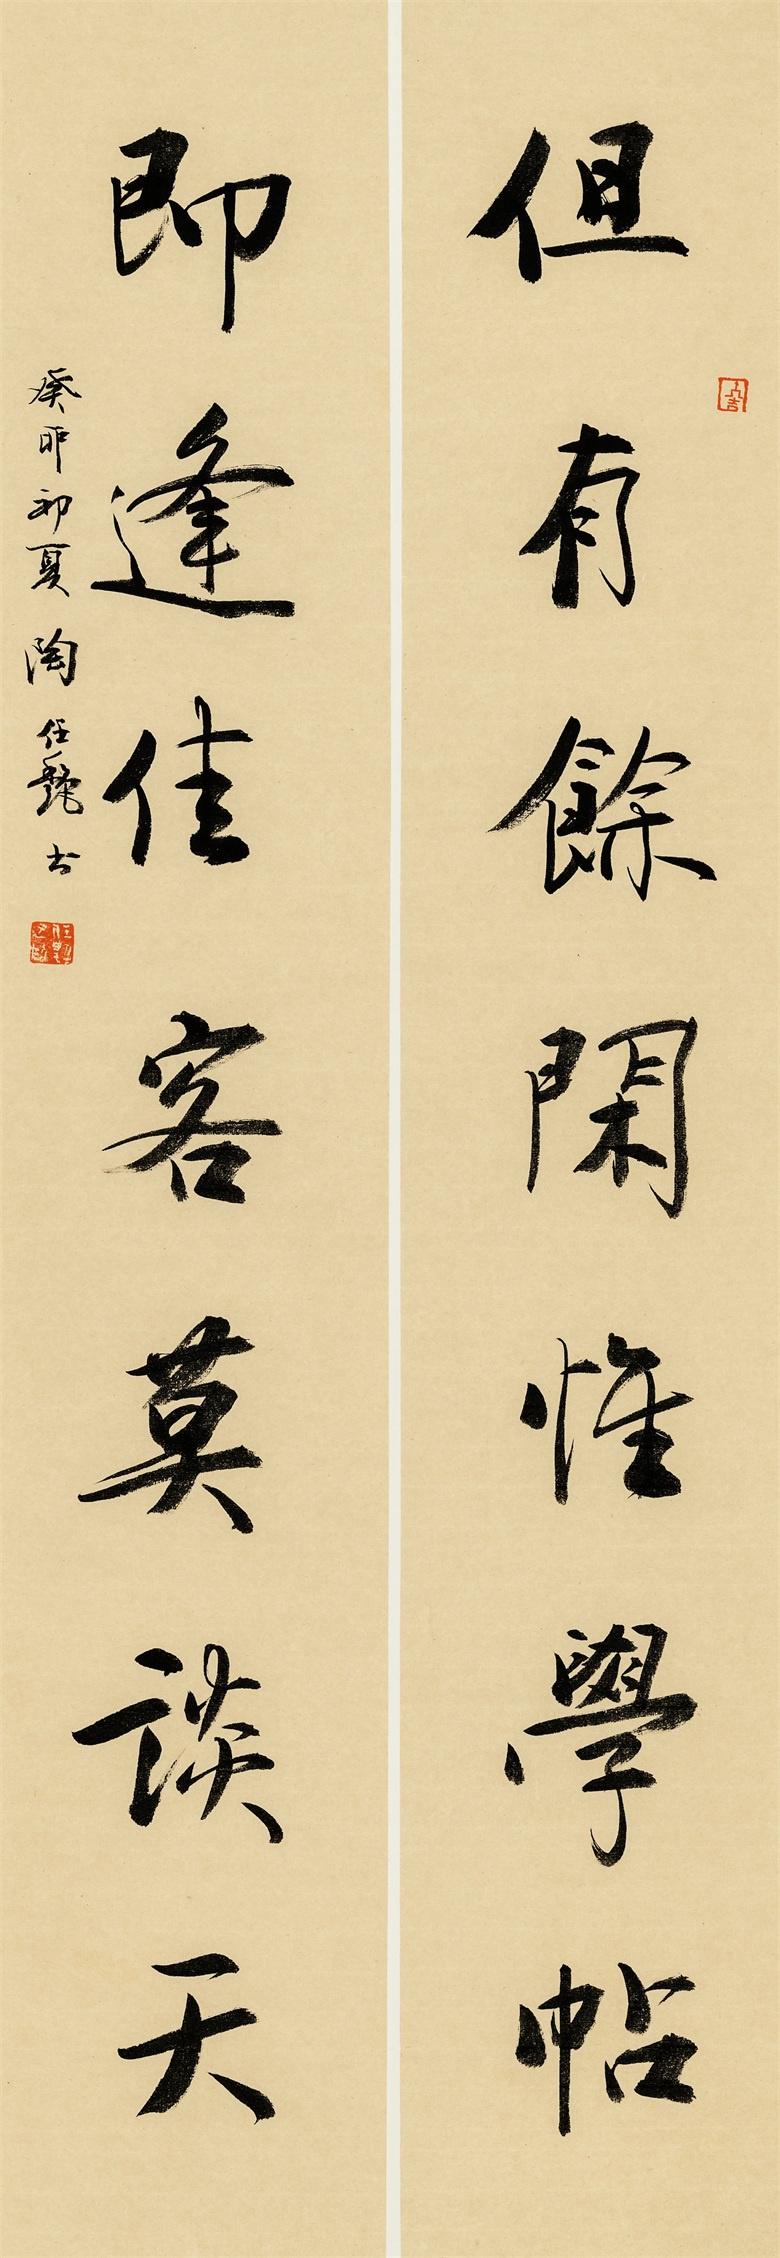 但有餘閑惟學帖
即逢佳客莫談天
癸卯初夏陶任艷书